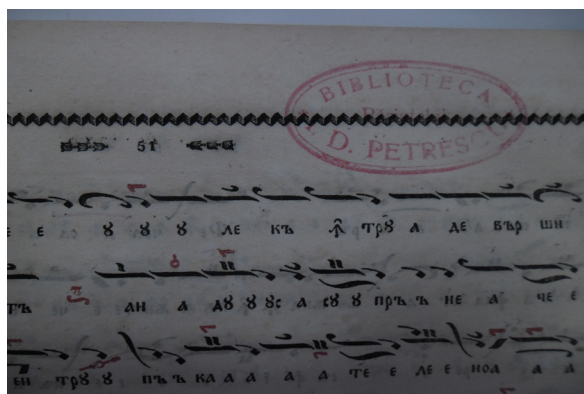 BIBLIOTECA
I. D. PETRESCU
51
Е Е Ꙋ Ꙋ Ꙋ ЛЕ КЪ Ꙟ ТРꙊ А ДЕ ВЪР ШИ
ТЪ АН А ДꙊ Ꙋ Ꙋс А сꙊ Ꙋ ПРЪ Ъ НЕ А ЧЕ Е
ЕН ТРꙊ Ꙋ ПЪ Ъ КА А А А А ТЕ Е ЛЕ Е НОА А А